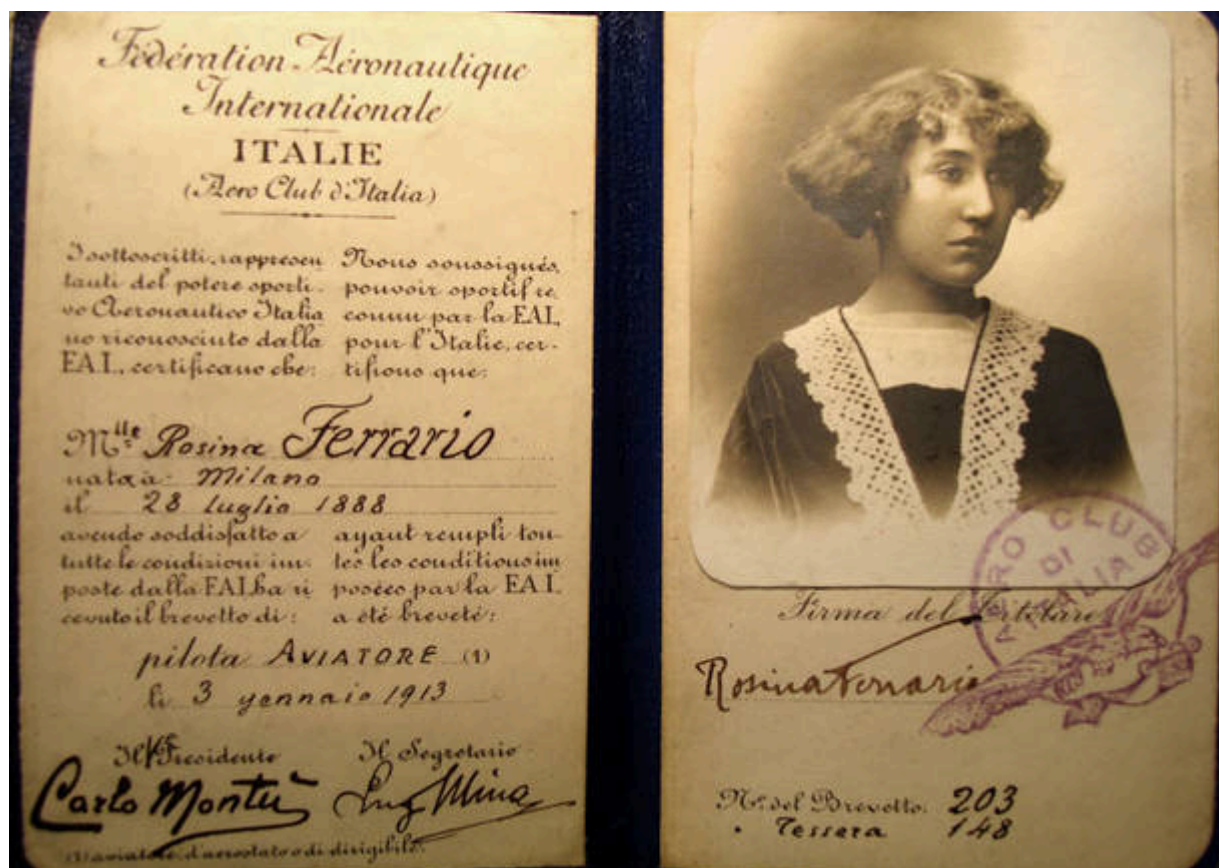 Fédération Aéronautique
Internationale
ITALIE
(Aero Club d'Italia)
I sottoscritti, rappresen
tanti del potere sporti-
vo Aeronautico Italia
no riconosciuto dalla
F.A.I., certificano che:
Nous soussignés,
pouvoir sportif re
connu par la F.A.I.
pour l'Italie, cer-
tifions que:
Mlle Rosina Ferrario
nata a Milano
il 28 luglio 1888
avendo soddisfatto a
tutte le condizioni im-
poste dalla F.A.I. ha ri
cevuto il brevetto di:
ayant rempli tou-
tes les conditions im
posées par la F.A.I.
a été breveté:
pilota AVIATORE (1)
li 3 gennaio 1913
Il Presidente
Il Segretario
Carlo Montù
Mina
(1) aviatore, d'aerostato o di dirigibile.
AERO CLUB
DI
ITALIA
Firma del Titolare
Rosina Ferrario
No. del Brevetto: 203
" Tessera 148